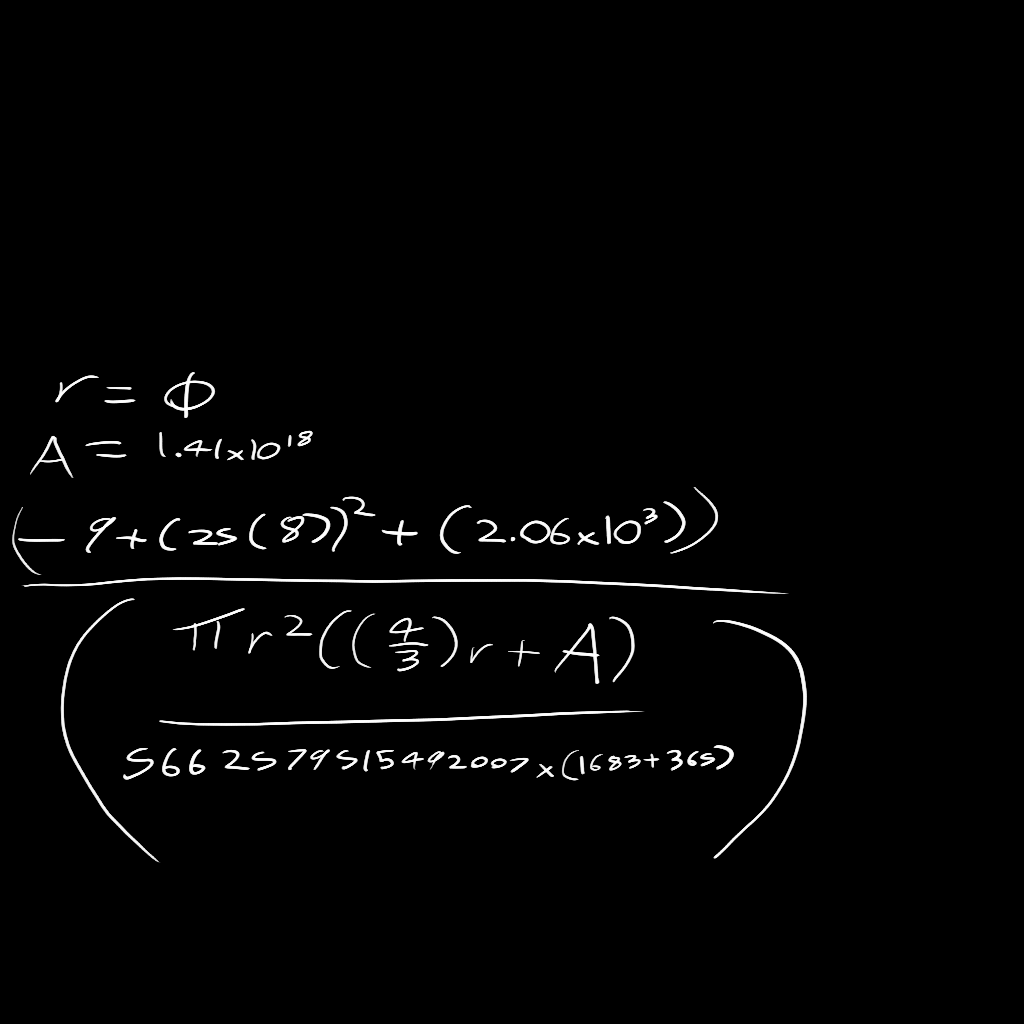 r = Φ
A = 1.41x10¹⁸
(-9+(25(8))²+(2.06x10³))
πr²((4/3)r+A)
5662579515492007x(1683+365)